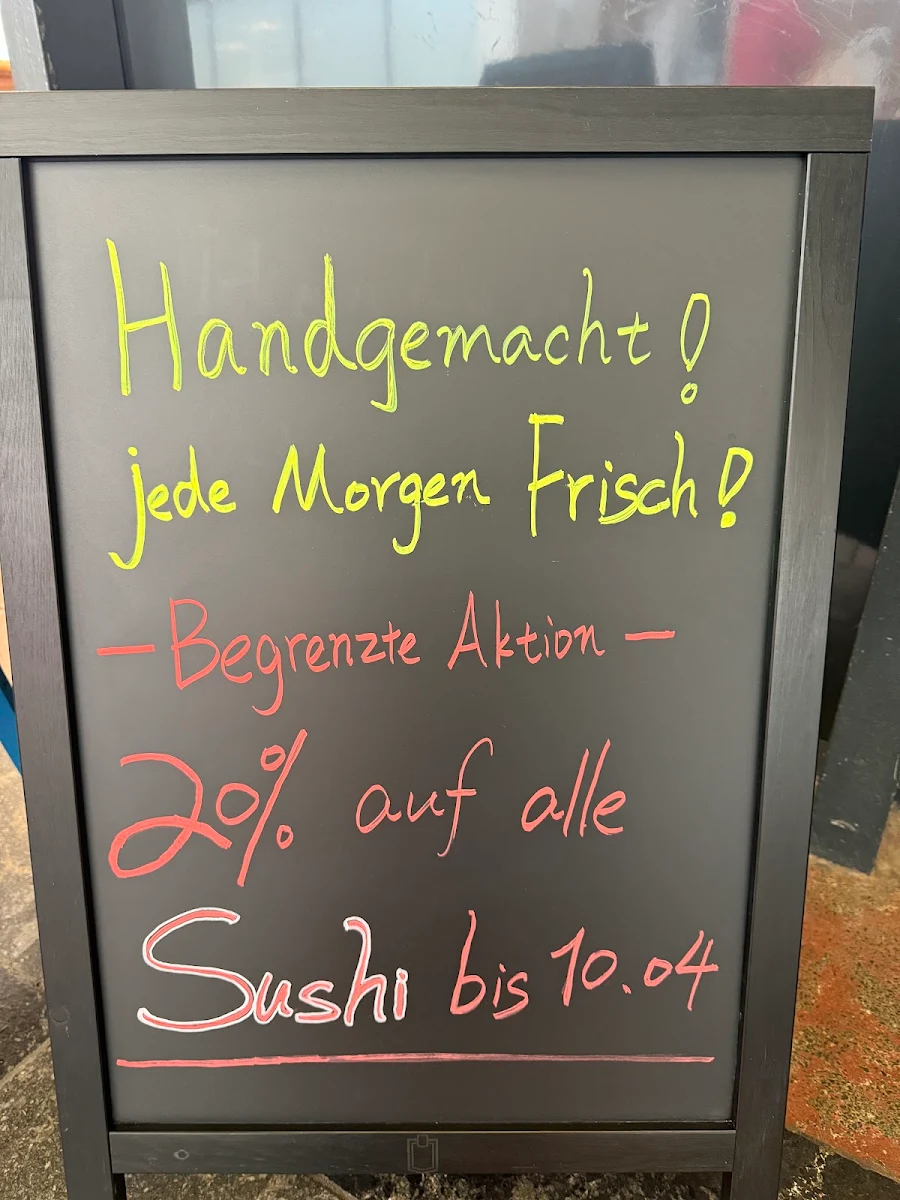 Handgemacht!
jede Morgen Frisch!
- Begrenzte Aktion -
20% auf alle
Sushi bis 10.04